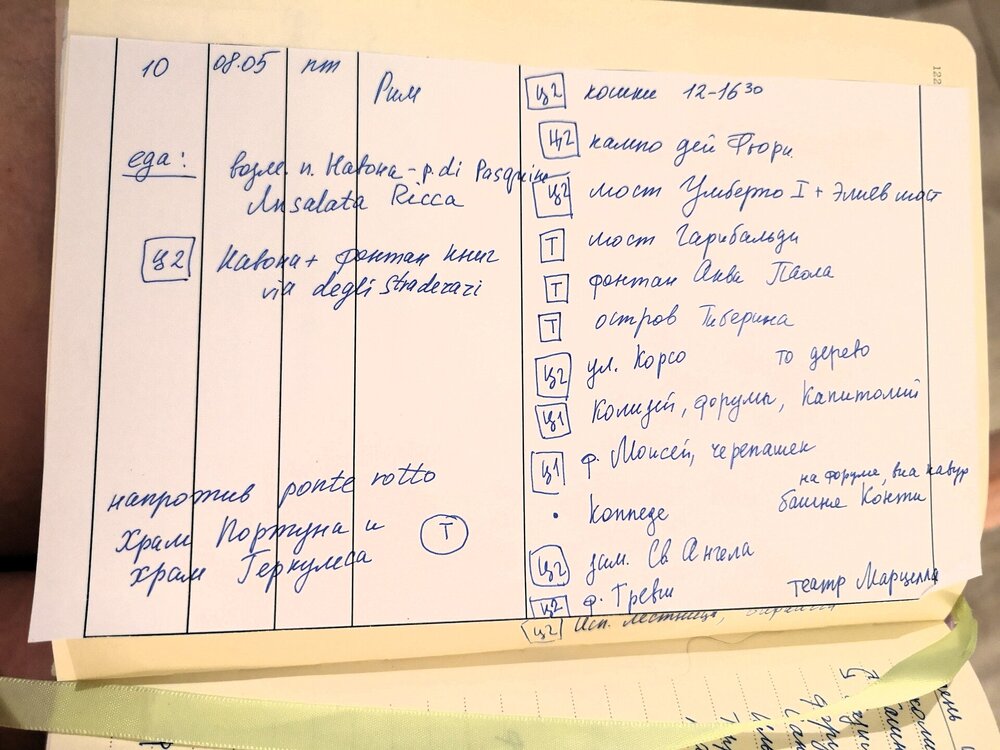 10 08.05 пт Рим
еда: возле п. Навона - p. di Pasquino
Insalata Ricca
Ц2 Навона + фонтан книг
via degli Straderari
напротив ponte rotto
Храм Портуна и
храм Геркулеса Т
Ц2 кошки 12-16 30
Ц2 кампо дей Фьори
Ц2 мост Умберто I + Элиев мост
Т мост Гарибальди
Т фонтан Аква Паола
Т остров Тиберина
Ц2 ул. Корсо то дерево
Ц1 Колизей, форумы, Капитолий
Ц1 ф. Моисей, черепашек
на форуме, виа кавур
• Коппеде башня Конти
Ц2 зам. Св Ангела
Ц2 ф. Треви театр Марцелла
Ц2 Исп. лестница,
122